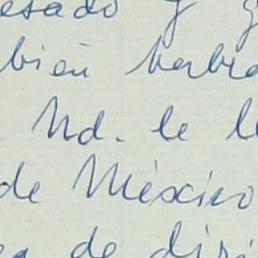 esado y g
bién habra
Ud. le l
de México
de diri